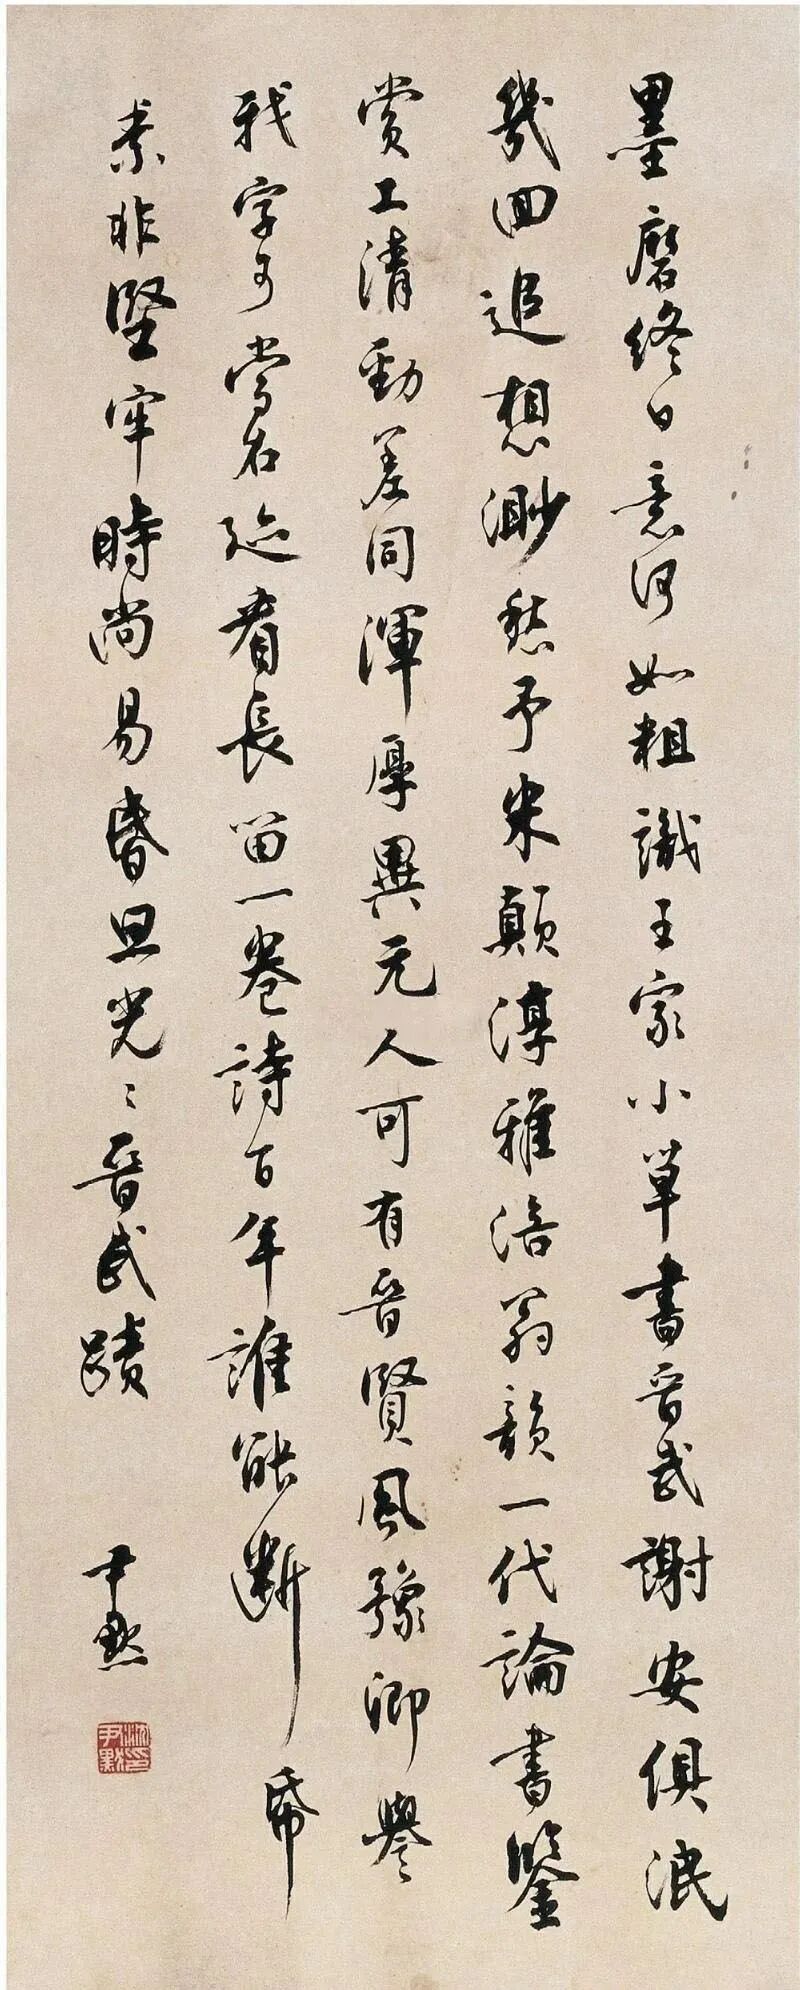 墨磨終日意何如粗識王家小草書晉武謝安俱泯
幾回追想渺愁予米顛淳雅涪翁韻一代論書鑒
賞工清勁差同渾厚異元人可有晉賢風豫卿譽
我字可當名迹看長留一卷詩百年誰能斷帋
素非堅牢時尚易昏旦光〻晉武蹟
尹默
沈尹默印